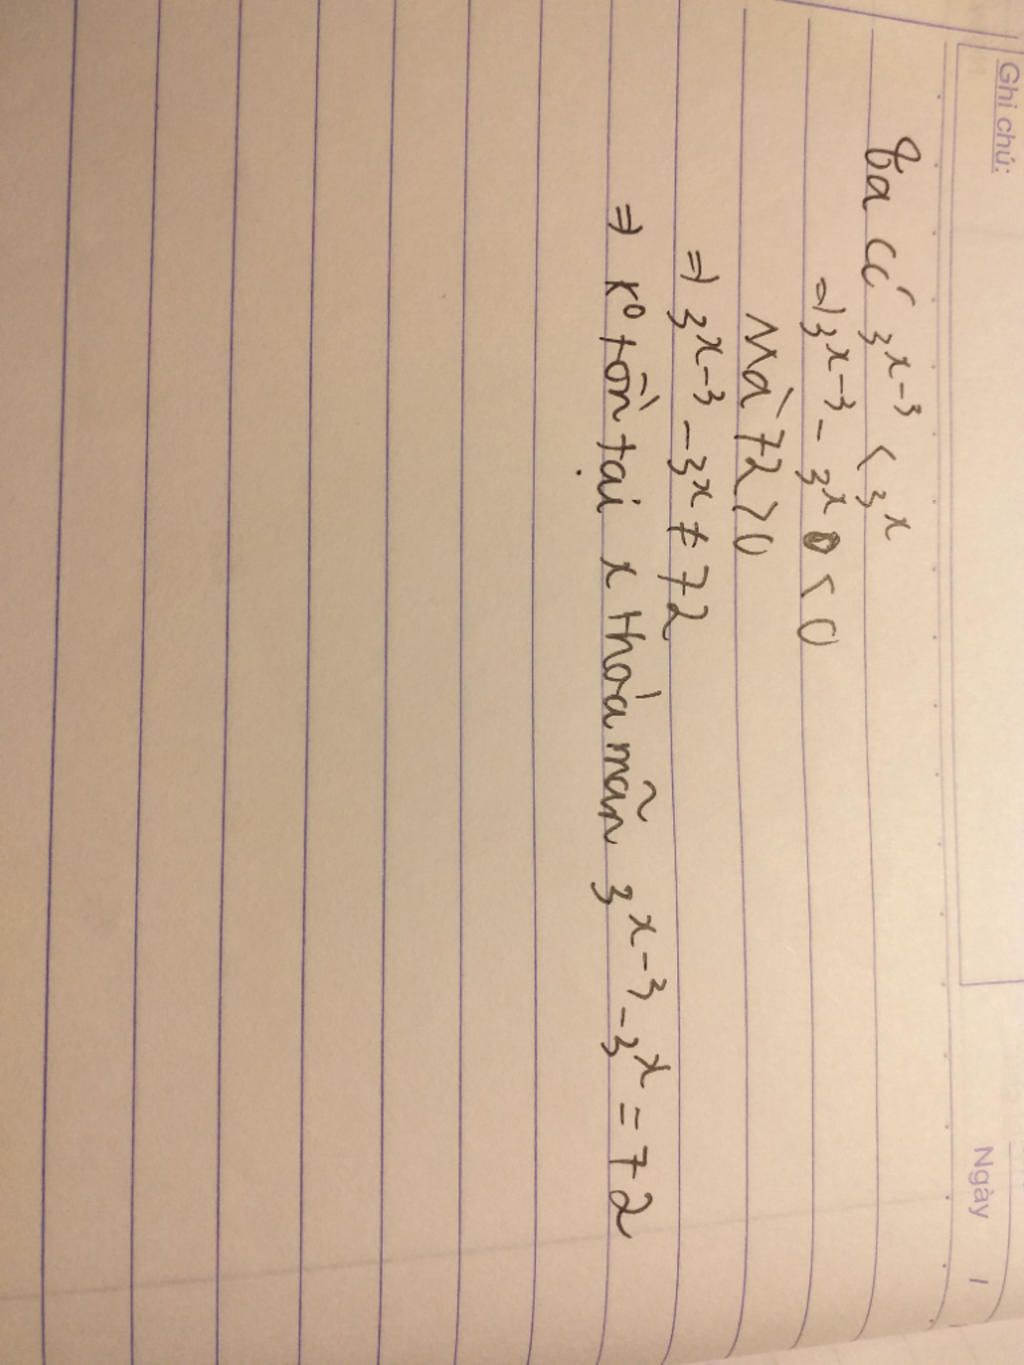 Ghi chú:
Ngày /
Ta có 3^x-3 < 3^x
=> 3^x-3 - 3^x < 0
Mà 72 > 0
=> 3^x-3 - 3^x ≠ 72
=> k° tồn tại x thoả mãn 3^x-3 - 3^x = 72